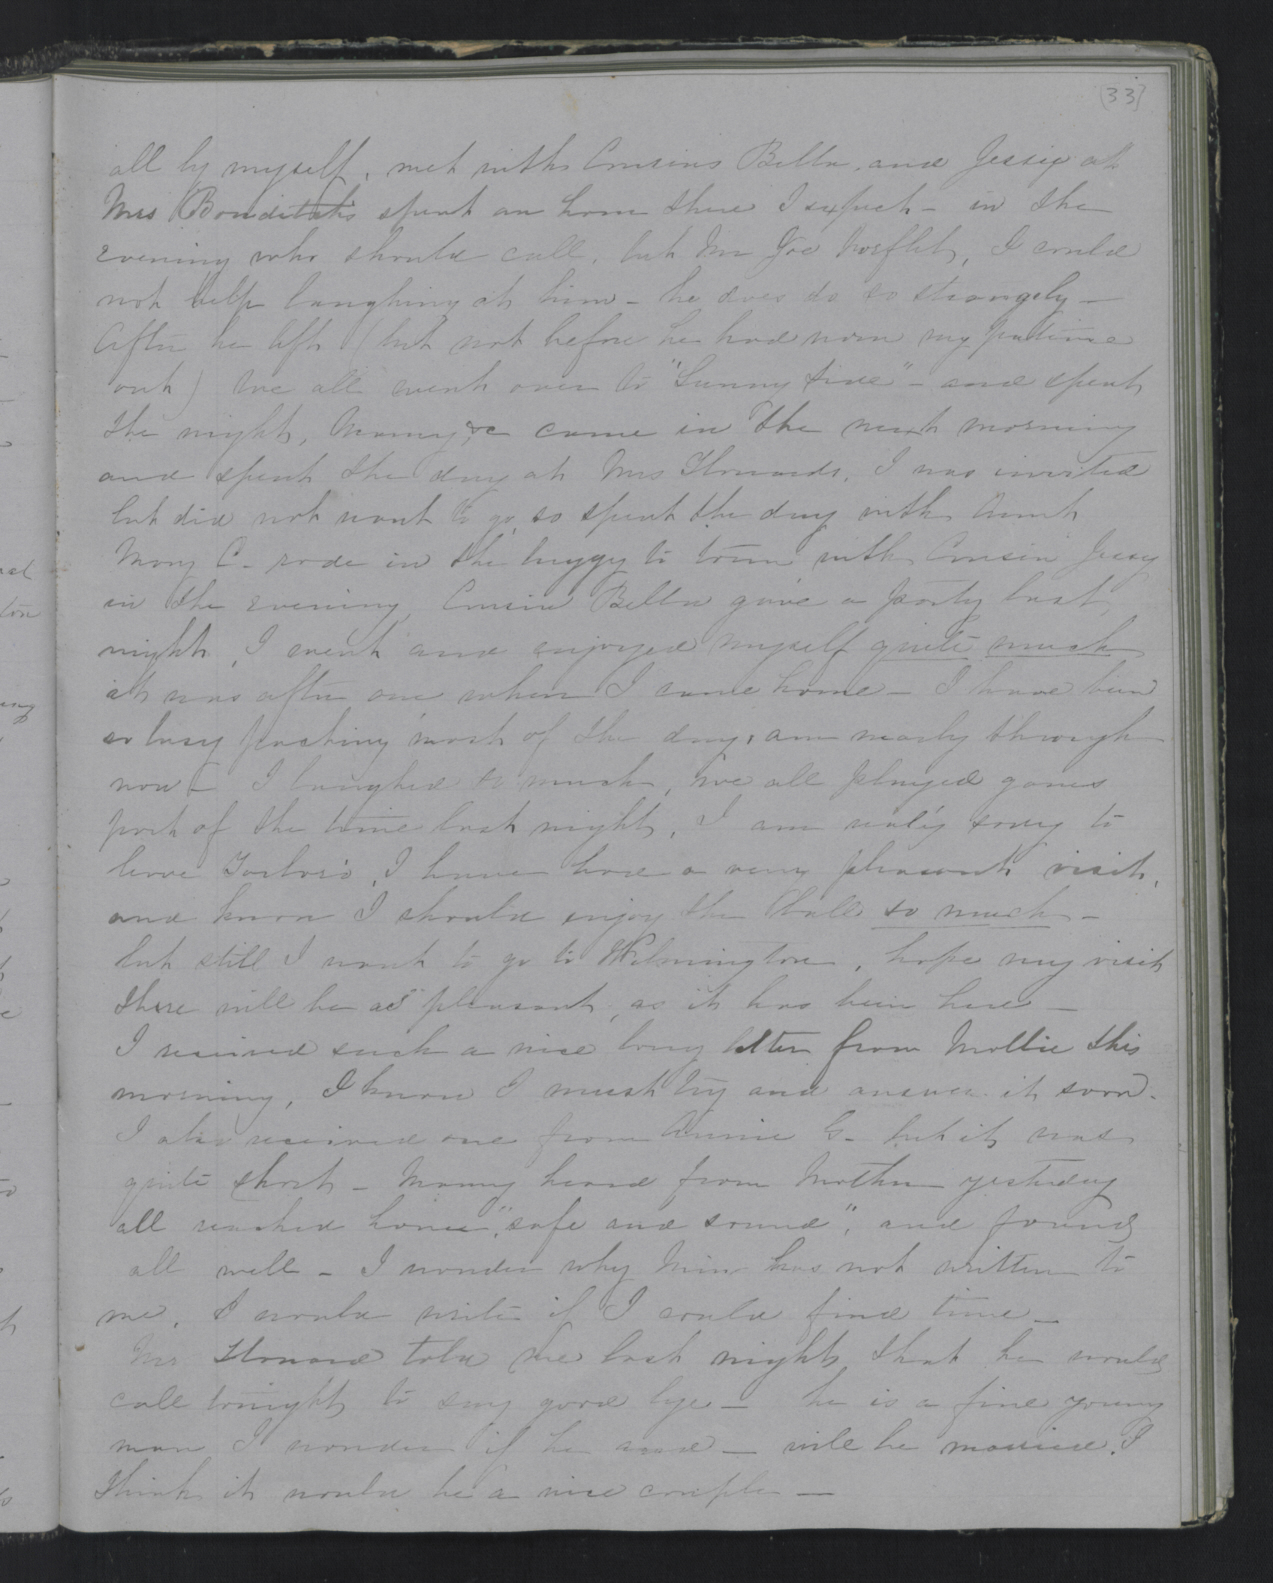 (33)
all by myself, met with Cousins Bella, and Jessie at
Mrs Bonditch's spent an hour there I expect - in the
evening who should call, but Mr Joe I could
not help laughing at him - he does do so strangely -
After he left (but not before he had worn my patience
out) We all went over to "Sunny side" - and spent
the night, Mamy &c came in the next morning
and spent the day at Mrs Howards, I was invited
but did not want to go, so spent the day with Aunt
Mary C - rode in the buggy to town with Cousin Jessy
in the evening, Cousin Bella gave a party last
night, I went and enjoyed myself quite much
it was after one when I came home - I have been
so busy packing most of the day, am nearly through
now - I laughed so much, we all played games
part of the time last night, I am really sorry to
leave Tarboro, I have had a very pleasant visit,
and know I should enjoy the Ball so much -
but still I want to go to Wilmington, hope my visit
there will be as pleasant, as it has been here -
I received such a nice long letter from Mollie this
morning, I know I must try and answer it soon -
I also received one from Annie G - but it was
quite short - Mamy heard from Mother yesterday
all reached home, "safe and sound", and found
all well - I wonder why Mim has not written to
me, I would write if I could find time -
Mr Howard told me last night that he would
call tonight to say good bye - he is a fine young
man I wonder if he and - will be married. I
think it would be a nice couple -